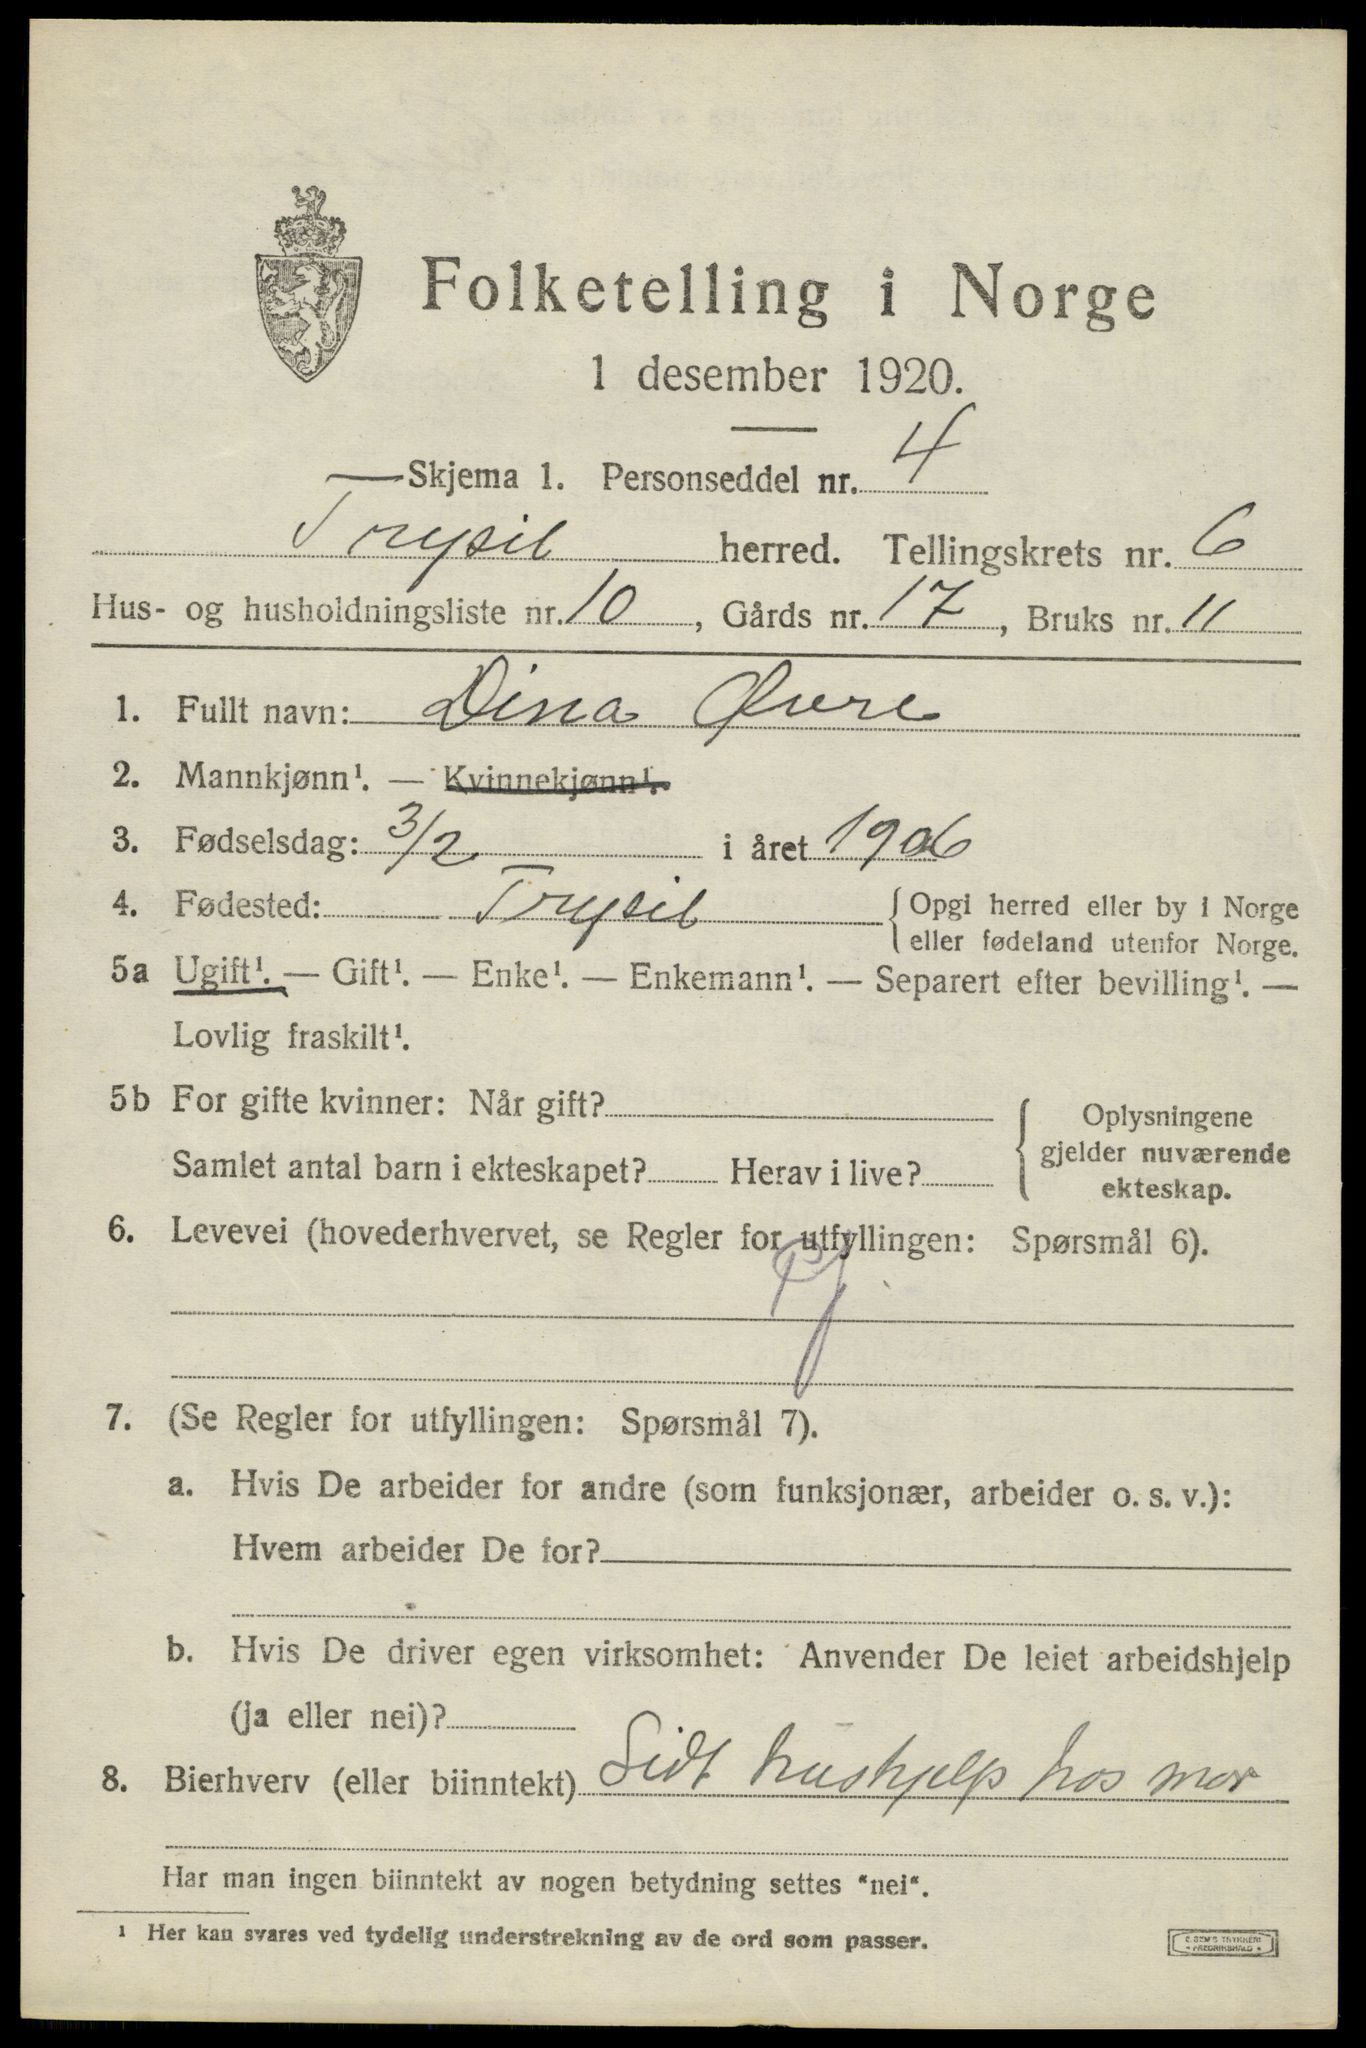 Folketelling i Norge
1 desember 1920.
Skjema 1. Personseddel nr. 4
Trysil herred. Tellingskrets nr. 6
Hus- og husholdningsliste nr. 10, Gårds nr. 17, Bruks nr. 11
1. Fullt navn: Dina Øvre
2. Mannkjønn¹. — Kvinnekjønn¹.
3. Fødselsdag: 3/2 i året 1906
4. Fødested: Trysil { Opgi herred eller by i Norge
eller fødeland utenfor Norge.
5a Ugift¹. — Gift¹. — Enke¹. — Enkemann¹. — Separert efter bevilling¹. —
Lovlig fraskilt¹.
5b For gifte kvinner: Når gift?
Samlet antal barn i ekteskapet? Herav i live?
{ Oplysningene
gjelder nuværende
ekteskap.
6. Levevei (hovederhvervet, se Regler for utfyllingen: Spørsmål 6).
7. (Se Regler for utfyllingen: Spørsmål 7).
a. Hvis De arbeider for andre (som funksjonær, arbeider o. s. v.):
Hvem arbeider De for?
b. Hvis De driver egen virksomhet: Anvender De leiet arbeidshjelp
(ja eller nei)?
8. Bierhverv (eller biinntekt) Lidt hushjelp hos mor
Har man ingen biinntekt av nogen betydning settes "nei".
¹ Her kan svares ved tydelig understrekning av de ord som passer.